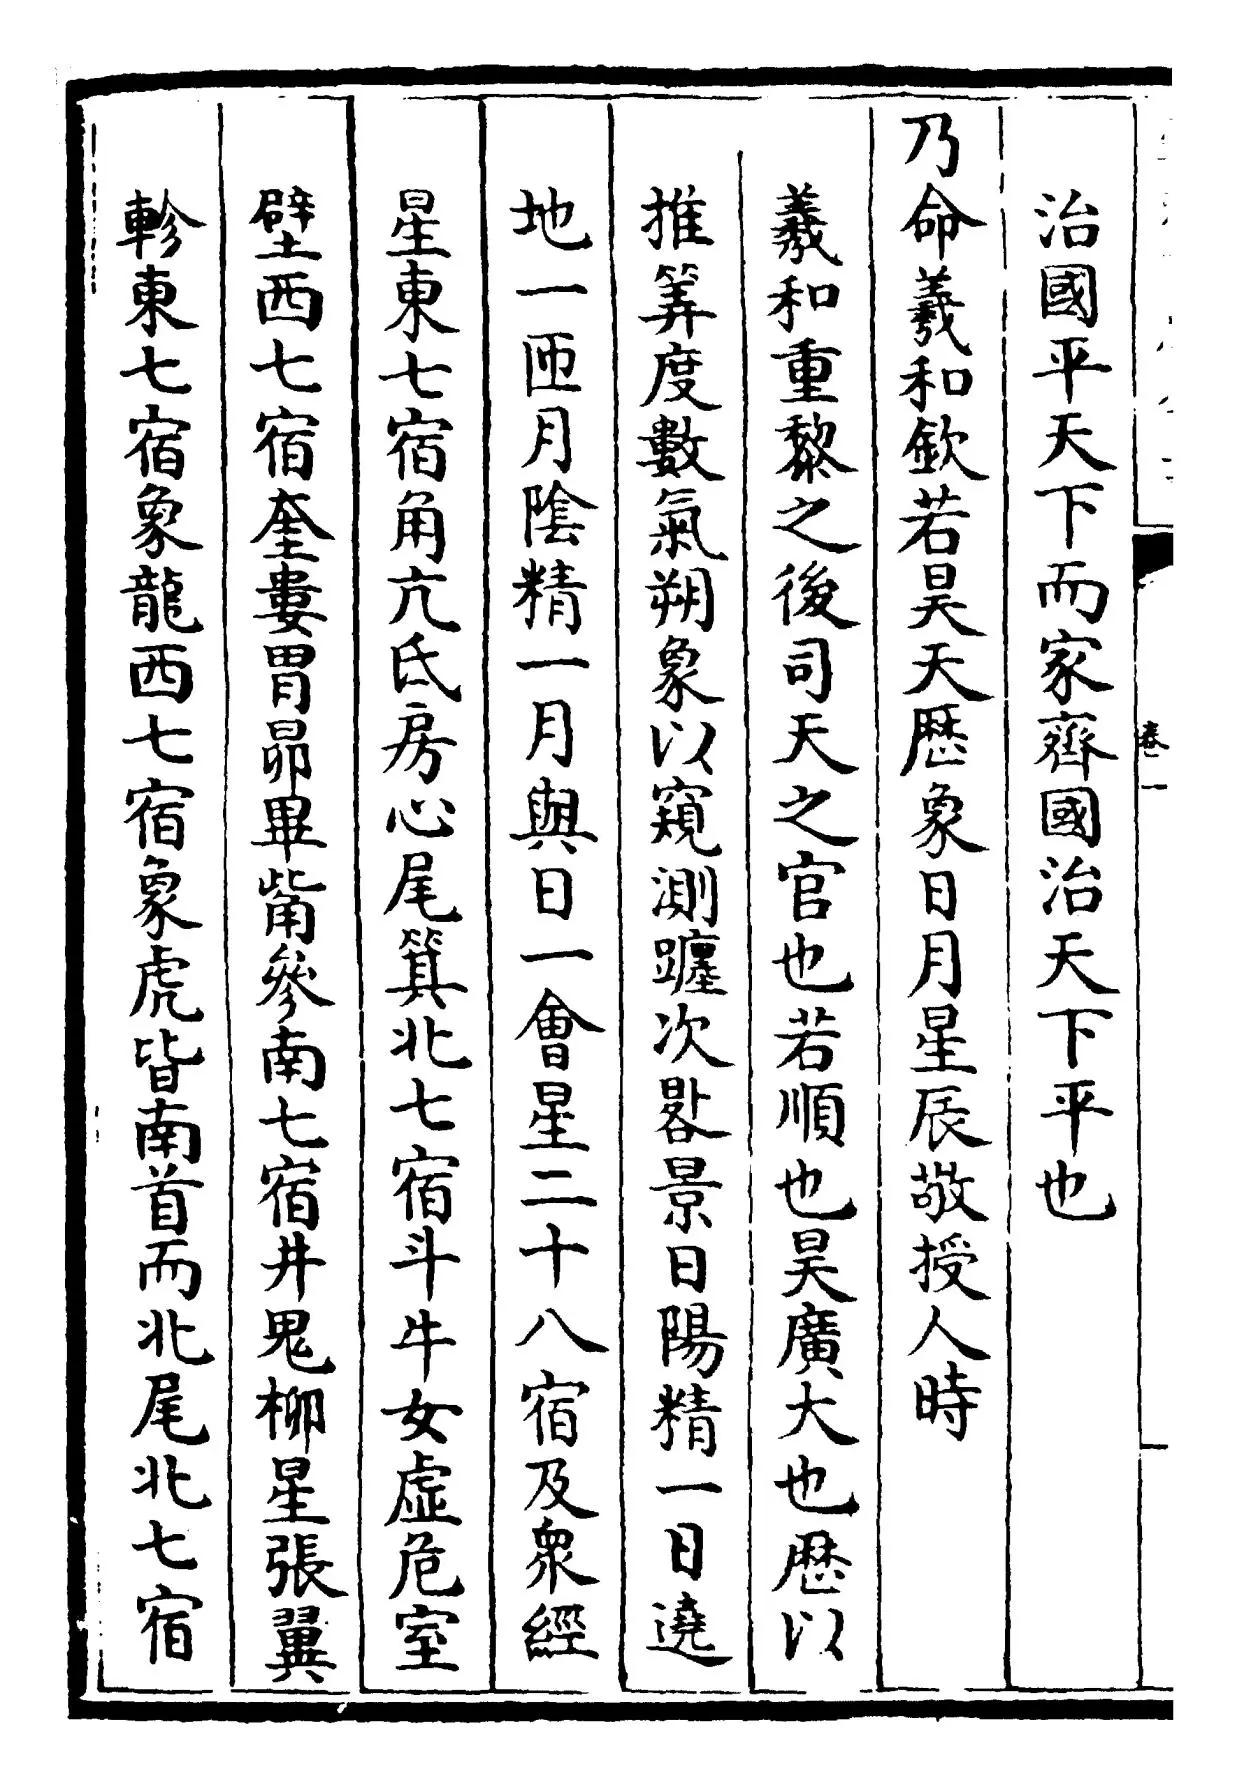 卷一
治國平天下而家齊國治天下平也
乃命羲和欽若昊天厯象日月星辰敬授人時
羲和重黎之後司天之官也若順也昊廣大也厯以
推筭度數氣朔象以窺測躔次晷景日陽精一日遶
地一匝月陰精一月與日一會星二十八宿及衆經
星東七宿角亢氐房心尾箕北七宿斗牛女虛危室
壁西七宿奎婁胃昴畢觜參南七宿井鬼柳星張翼
軫東七宿象龍西七宿象虎皆南首而北尾北七宿